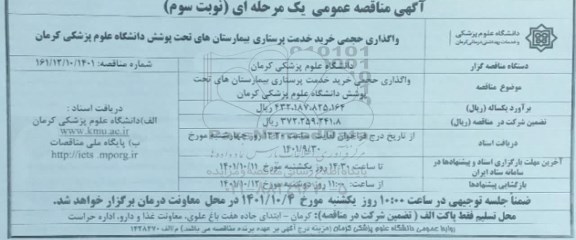 آگهی مناقصه عمومی یک مرحله ای (نوبت سوم)
دانشگاه علوم پزشکی
و خدمات بهداشتی درمانی کرمان
واگذاری حجمی خرید خدمت پرستاری بیمارستان های تحت پوشش دانشگاه علوم پزشکی کرمان
دستگاه مناقصه گزار
دانشگاه علوم پزشکی کرمان
شماره مناقصه: ۱۶۱/۱۲/۱۰/۱۴۰۱
موضوع مناقصه
واگذاری حجمی خرید خدمت پرستاری بیمارستان های تحت
پوشش دانشگاه علوم پزشکی کرمان
برآورد یکساله (ریال)
۴۳۲.۱۸۷.۸۲۵.۱۶۴ ریال
تضمین شرکت در مناقصه (ریال)
ریال
دریافت اسناد
از تاریخ درج فراخوان لغایت ساعت ۱۲:۳۰ روز چهارشنبه مورخ
۱۴۰۱/۹/۳۰
آخرین مهلت بارگزاری اسناد و پیشنهادها در
سامانه ستاد ایران
تا ساعت ۱۴:۳۰ روز یکشنبه مورخ ۱۴۰۱/۱۰/۱۱
بازگشایی پیشنهادها
از ساعت ۱۱:۰۰ روز دوشنبه مورخ ۱۴۰۱/۱۰/۱۲
دریافت اسناد :
الف) دانشگاه علوم پزشکی کرمان
www.kmu.ac.ir
ب) پایگاه ملی مناقصات
http://iets.mporg.ir
ضمناً جلسه توجیهی در ساعت ۱۰:۰۰ روز یکشنبه مورخ ۱۴۰۱/۱۰/۴ در محل معاونت درمان برگزار خواهد شد.
محل تسلیم فقط پاکت الف ( تضمین شرکت در مناقصه): کرمان - ابتدای جاده هفت باغ علوی، معاونت غذا و دارو، اداره حراست
روابط عمومی دانشگاه علوم پزشکی کرمان (هزینه درج آگهی بر عهده برنده مناقصه می باشد) م/الف